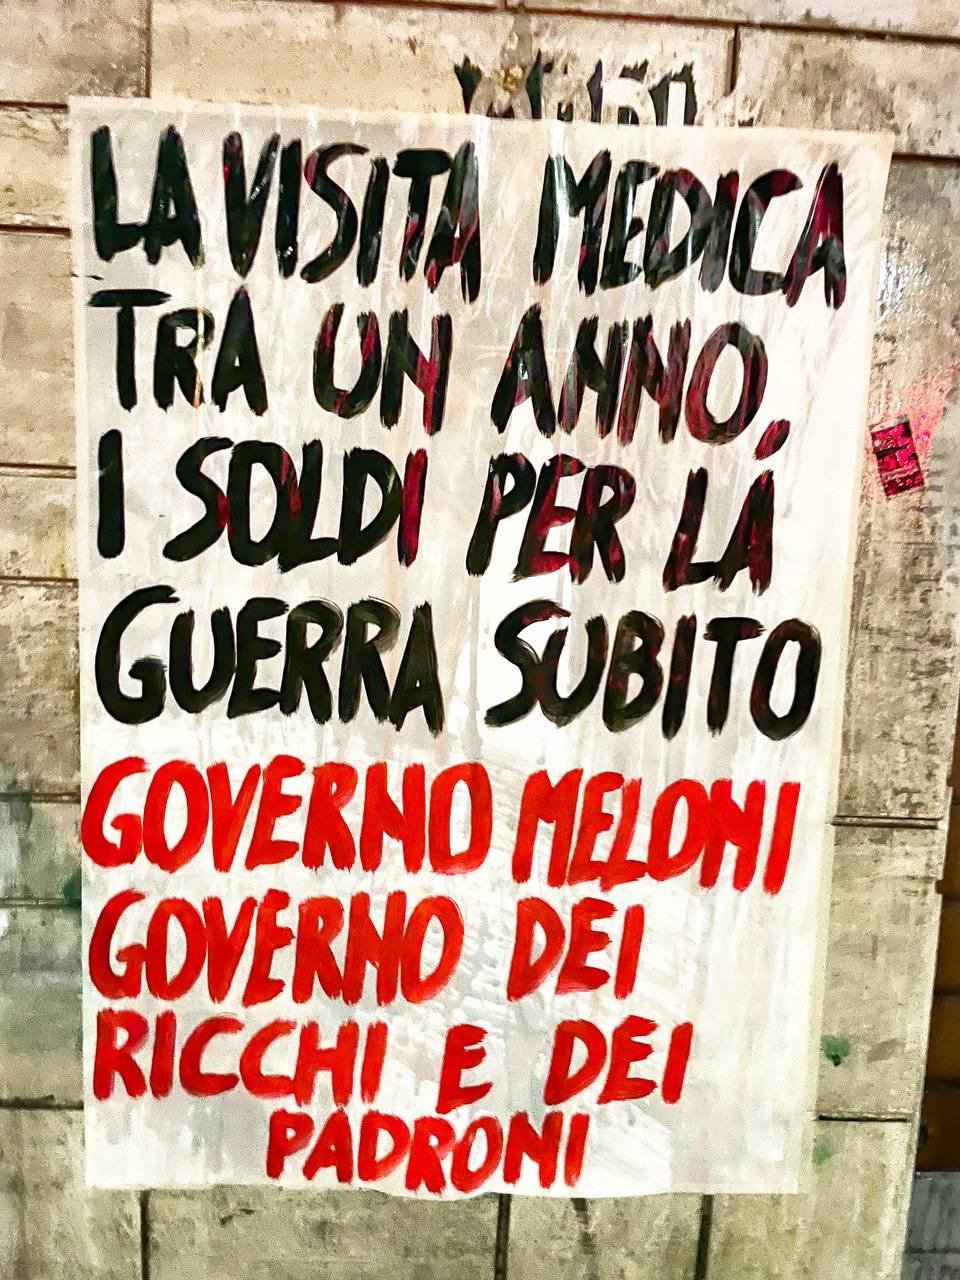 LA VISITA MEDICA
TRA UN ANNO,
I SOLDI PER LA
GUERRA SUBITO
GOVERNO MELONI
GOVERNO DEI
RICCHI E DEI
PADRONI